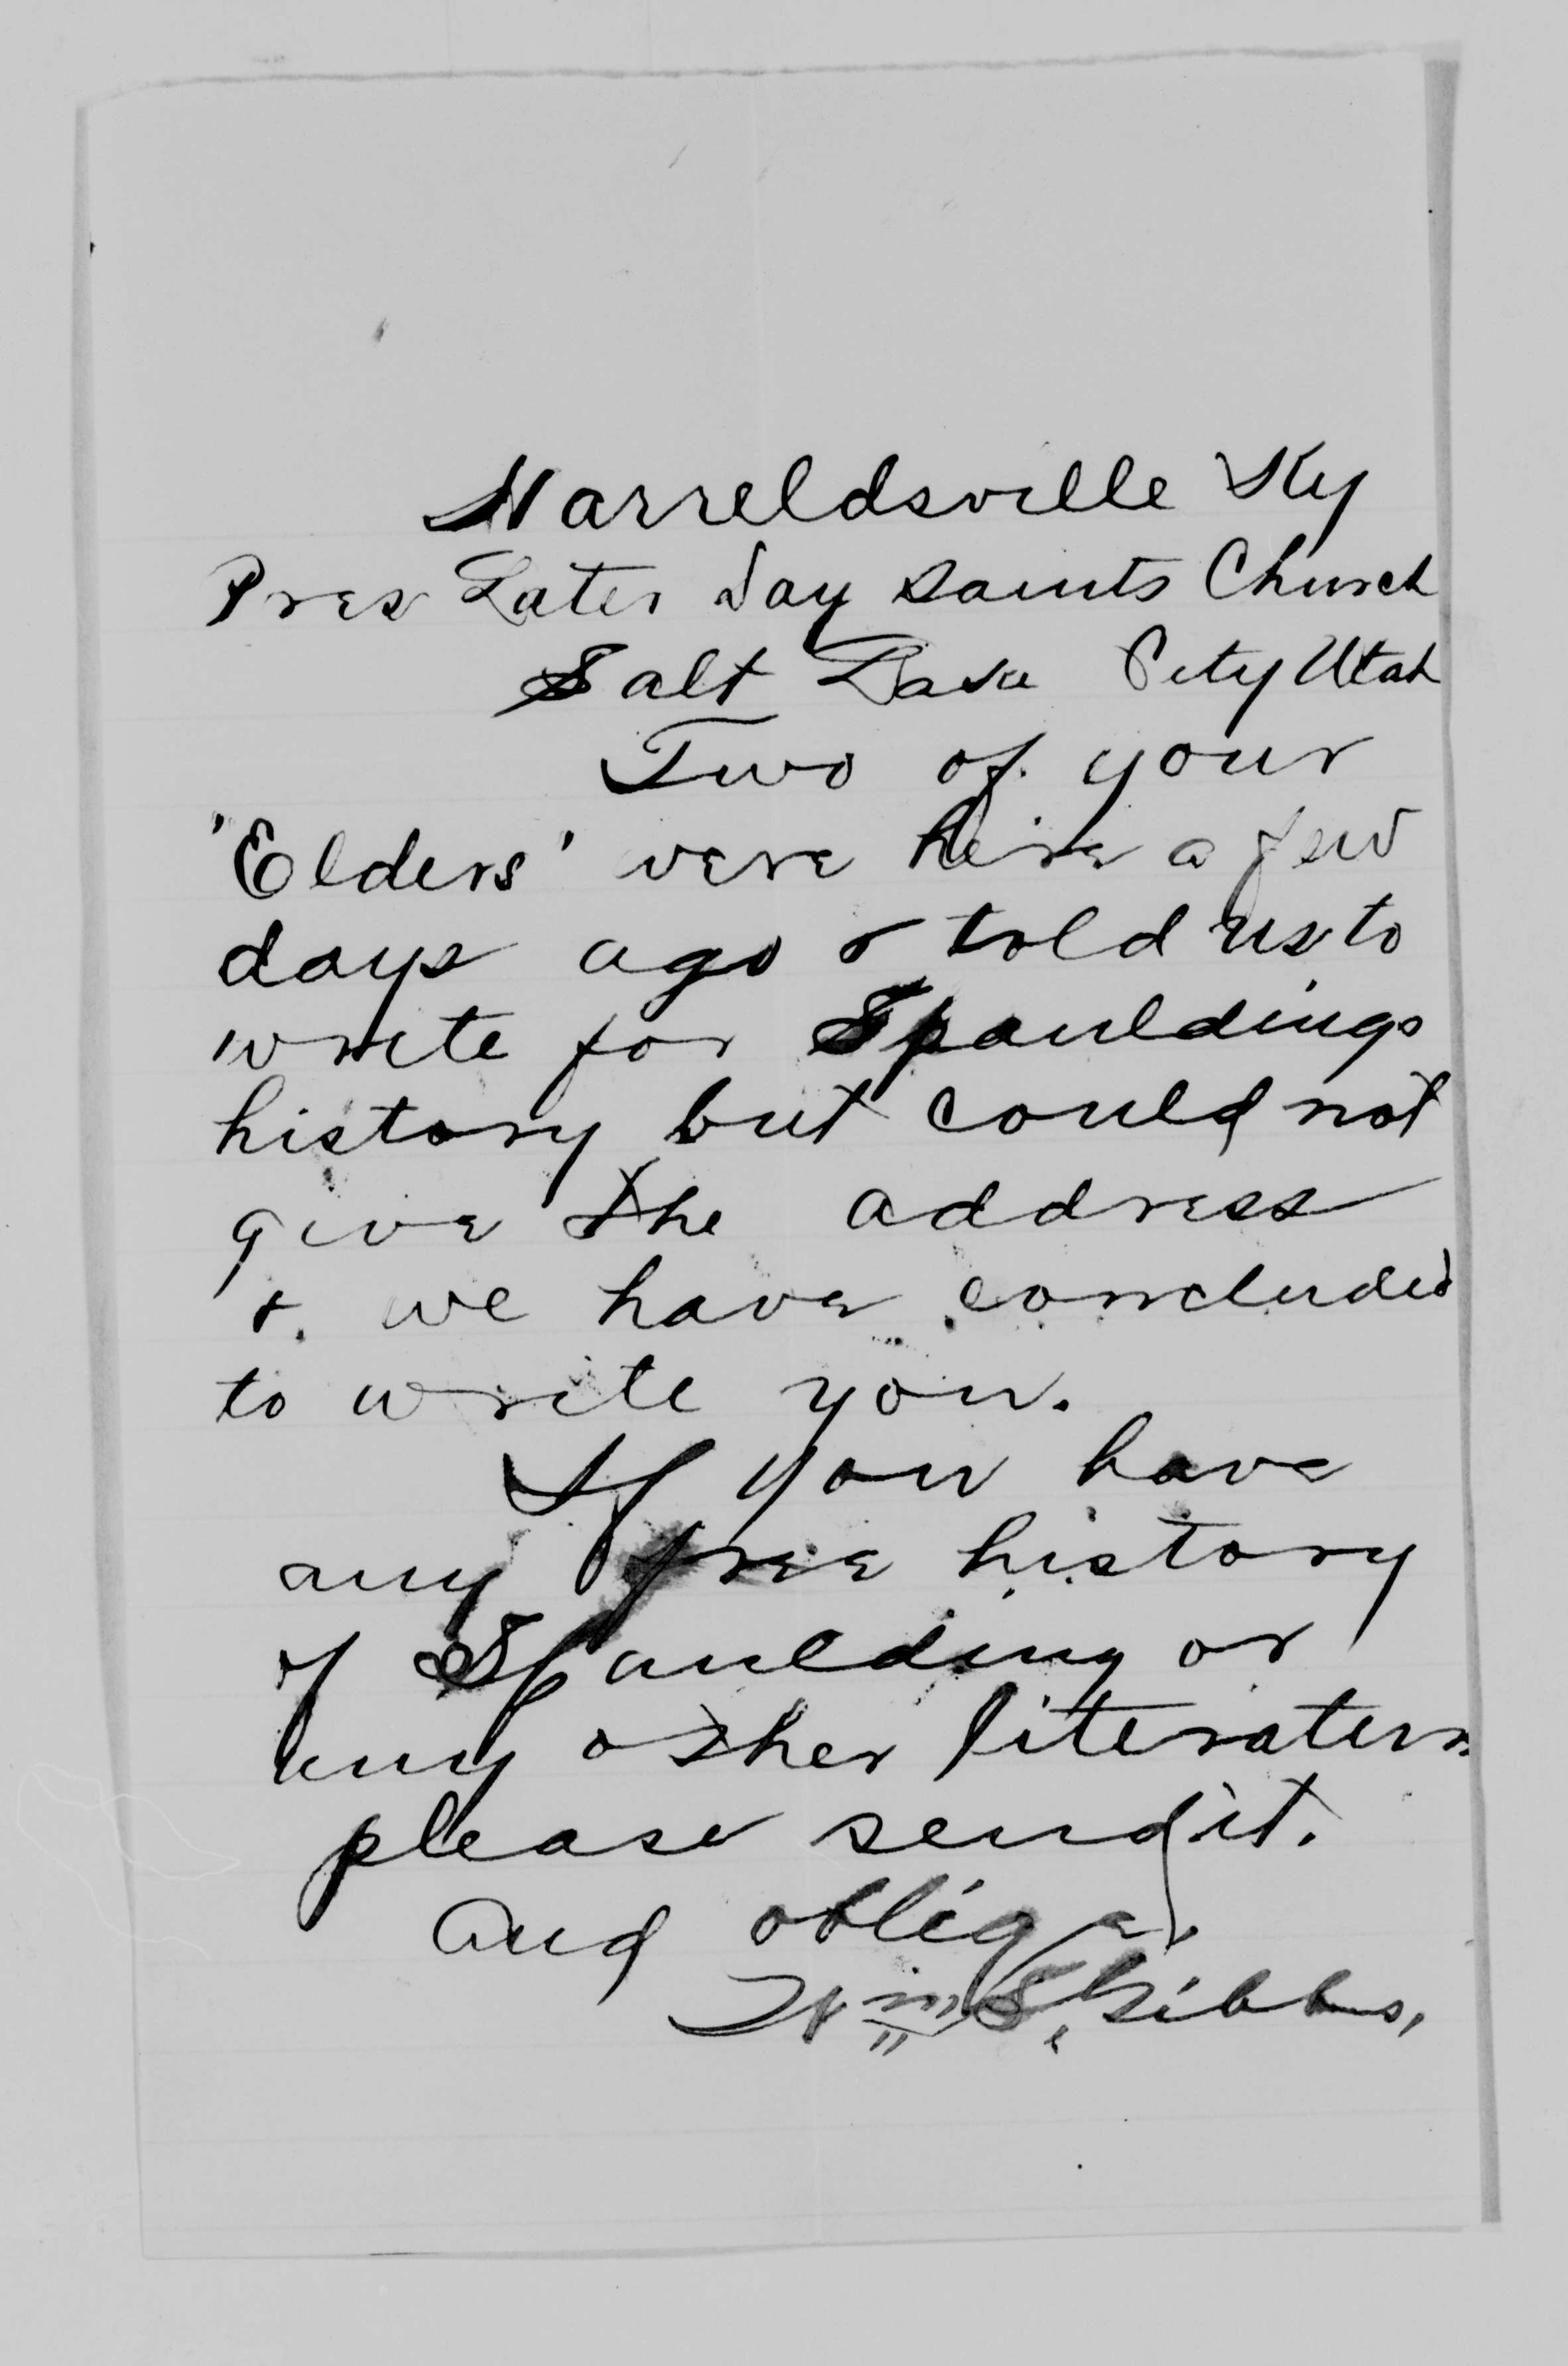 Harreldsville Ky
Pres Later Day Saints Church
Salt Lake City Utah
Two of your
"Elders" were here a few
days ago & told us to
write for Spauldings
history but could not
give the address
& we have concluded
to write you.
If you have
any free history
of Spaulding or
any other literature
please send it.
And oblige.
Wm S. Gibbs,